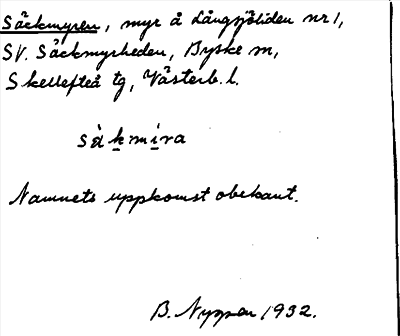 Säckmyren, myr å Långsjöliden nr 1,
SV. Säckmyrheden, Byske sn,
Skellefteå tg, Västerb. l.
sàkmi̇ra
Namnets uppkomst obekant.
B. 1932.